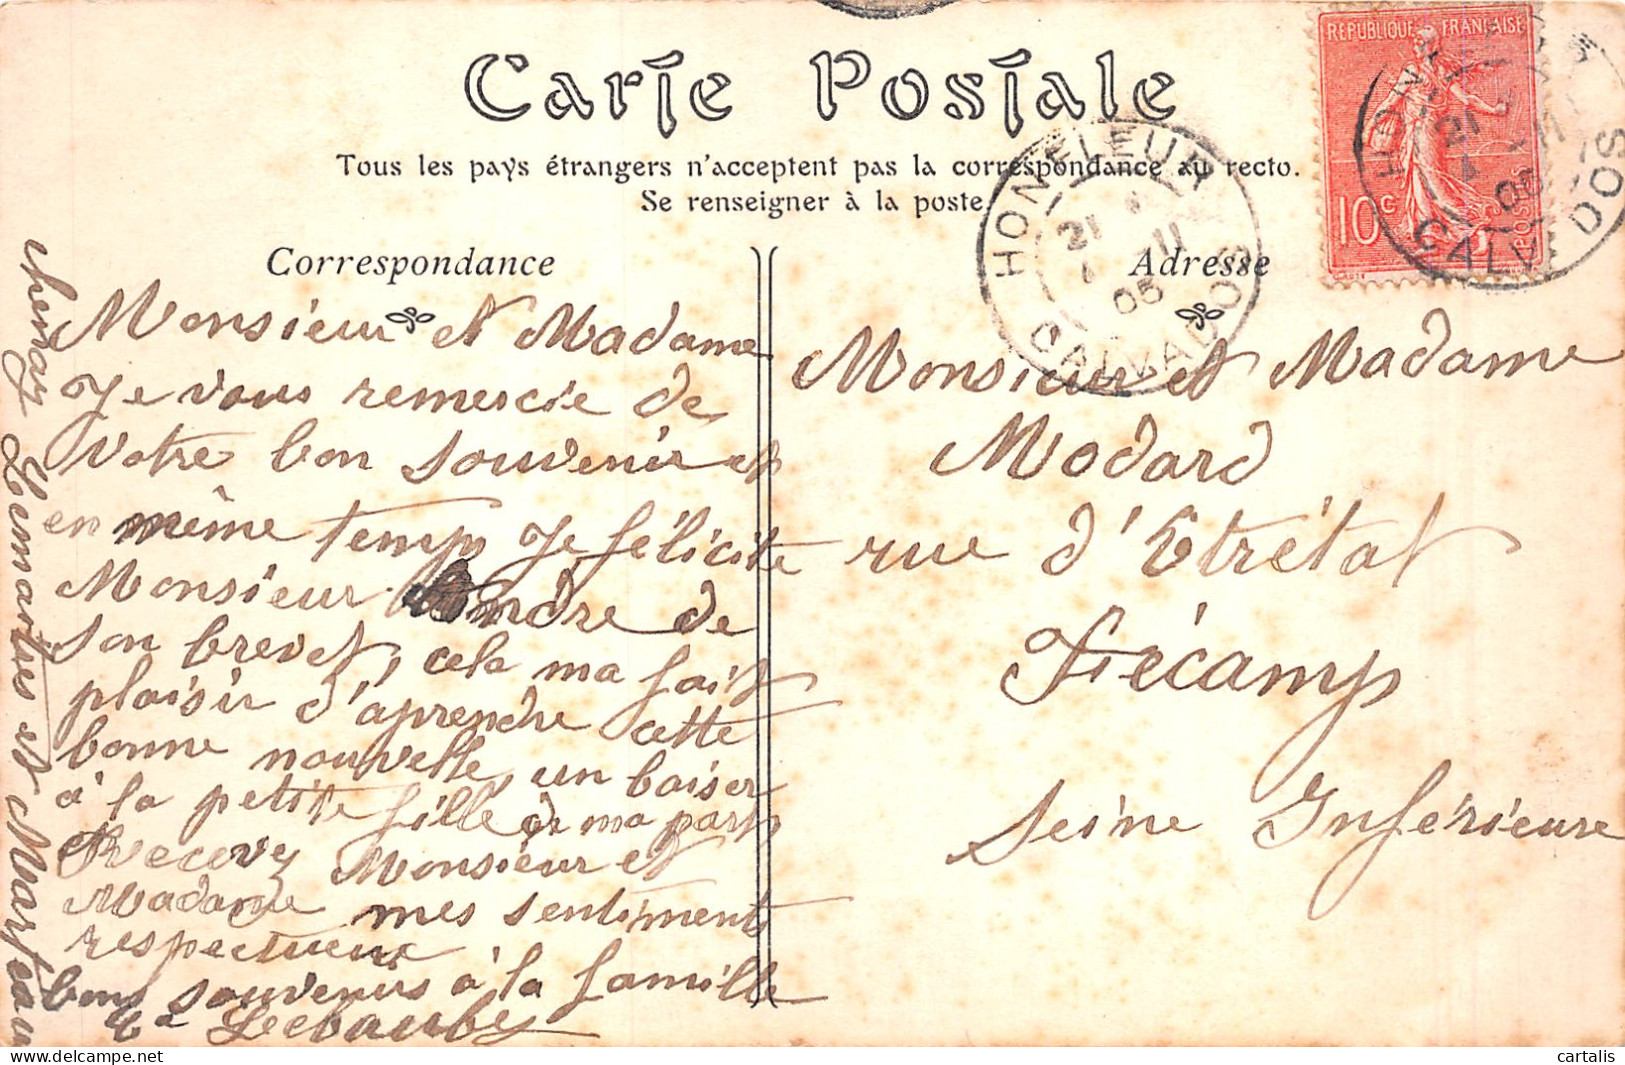 Carte Postale
Tous les pays étrangers n'acceptent pas la correspondance au recto.
Se renseigner à la poste.
Correspondance
Monsieur et Madame
Je vous remercie de
votre bon souvenir et
en même temps Je félicite
Monsieur Andre de
son brevet, cela ma fait
plaisir d'aprendre cette
bonne nouvelle, un baiser
à la petite fille de ma part
Recevez Monsieur et
Madame mes sentiments
respectueux
bons souvenirs à la famille
Lebauby
chenay Lemartres et Marteau
Adresse
Monsieur et Madame
Modard
rue d'Etrétat
Fécamp
Seine Inférieure
REPUBLIQUE FRANÇAISE
10 c POSTES
HONFLEUR
21
11
05
CALVADOS
HONFLEUR
21
05
CALVADOS
cartalis